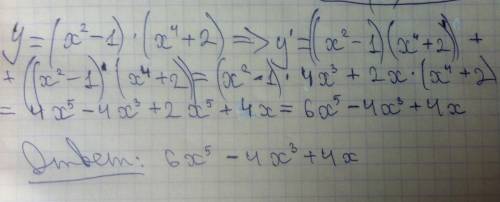 y = (x² - 1) · (x⁴ + 2) => y' = (x² - 1)(x⁴ + 2)' +
+ ((x² - 1)' (x⁴ + 2) = (x² - 1) · 4x³ + 2x · (x⁴ + 2)
= 4x⁵ - 4x³ + 2x⁵ + 4x = 6x⁵ - 4x³ + 4x
Ответ: 6x⁵ - 4x³ + 4x